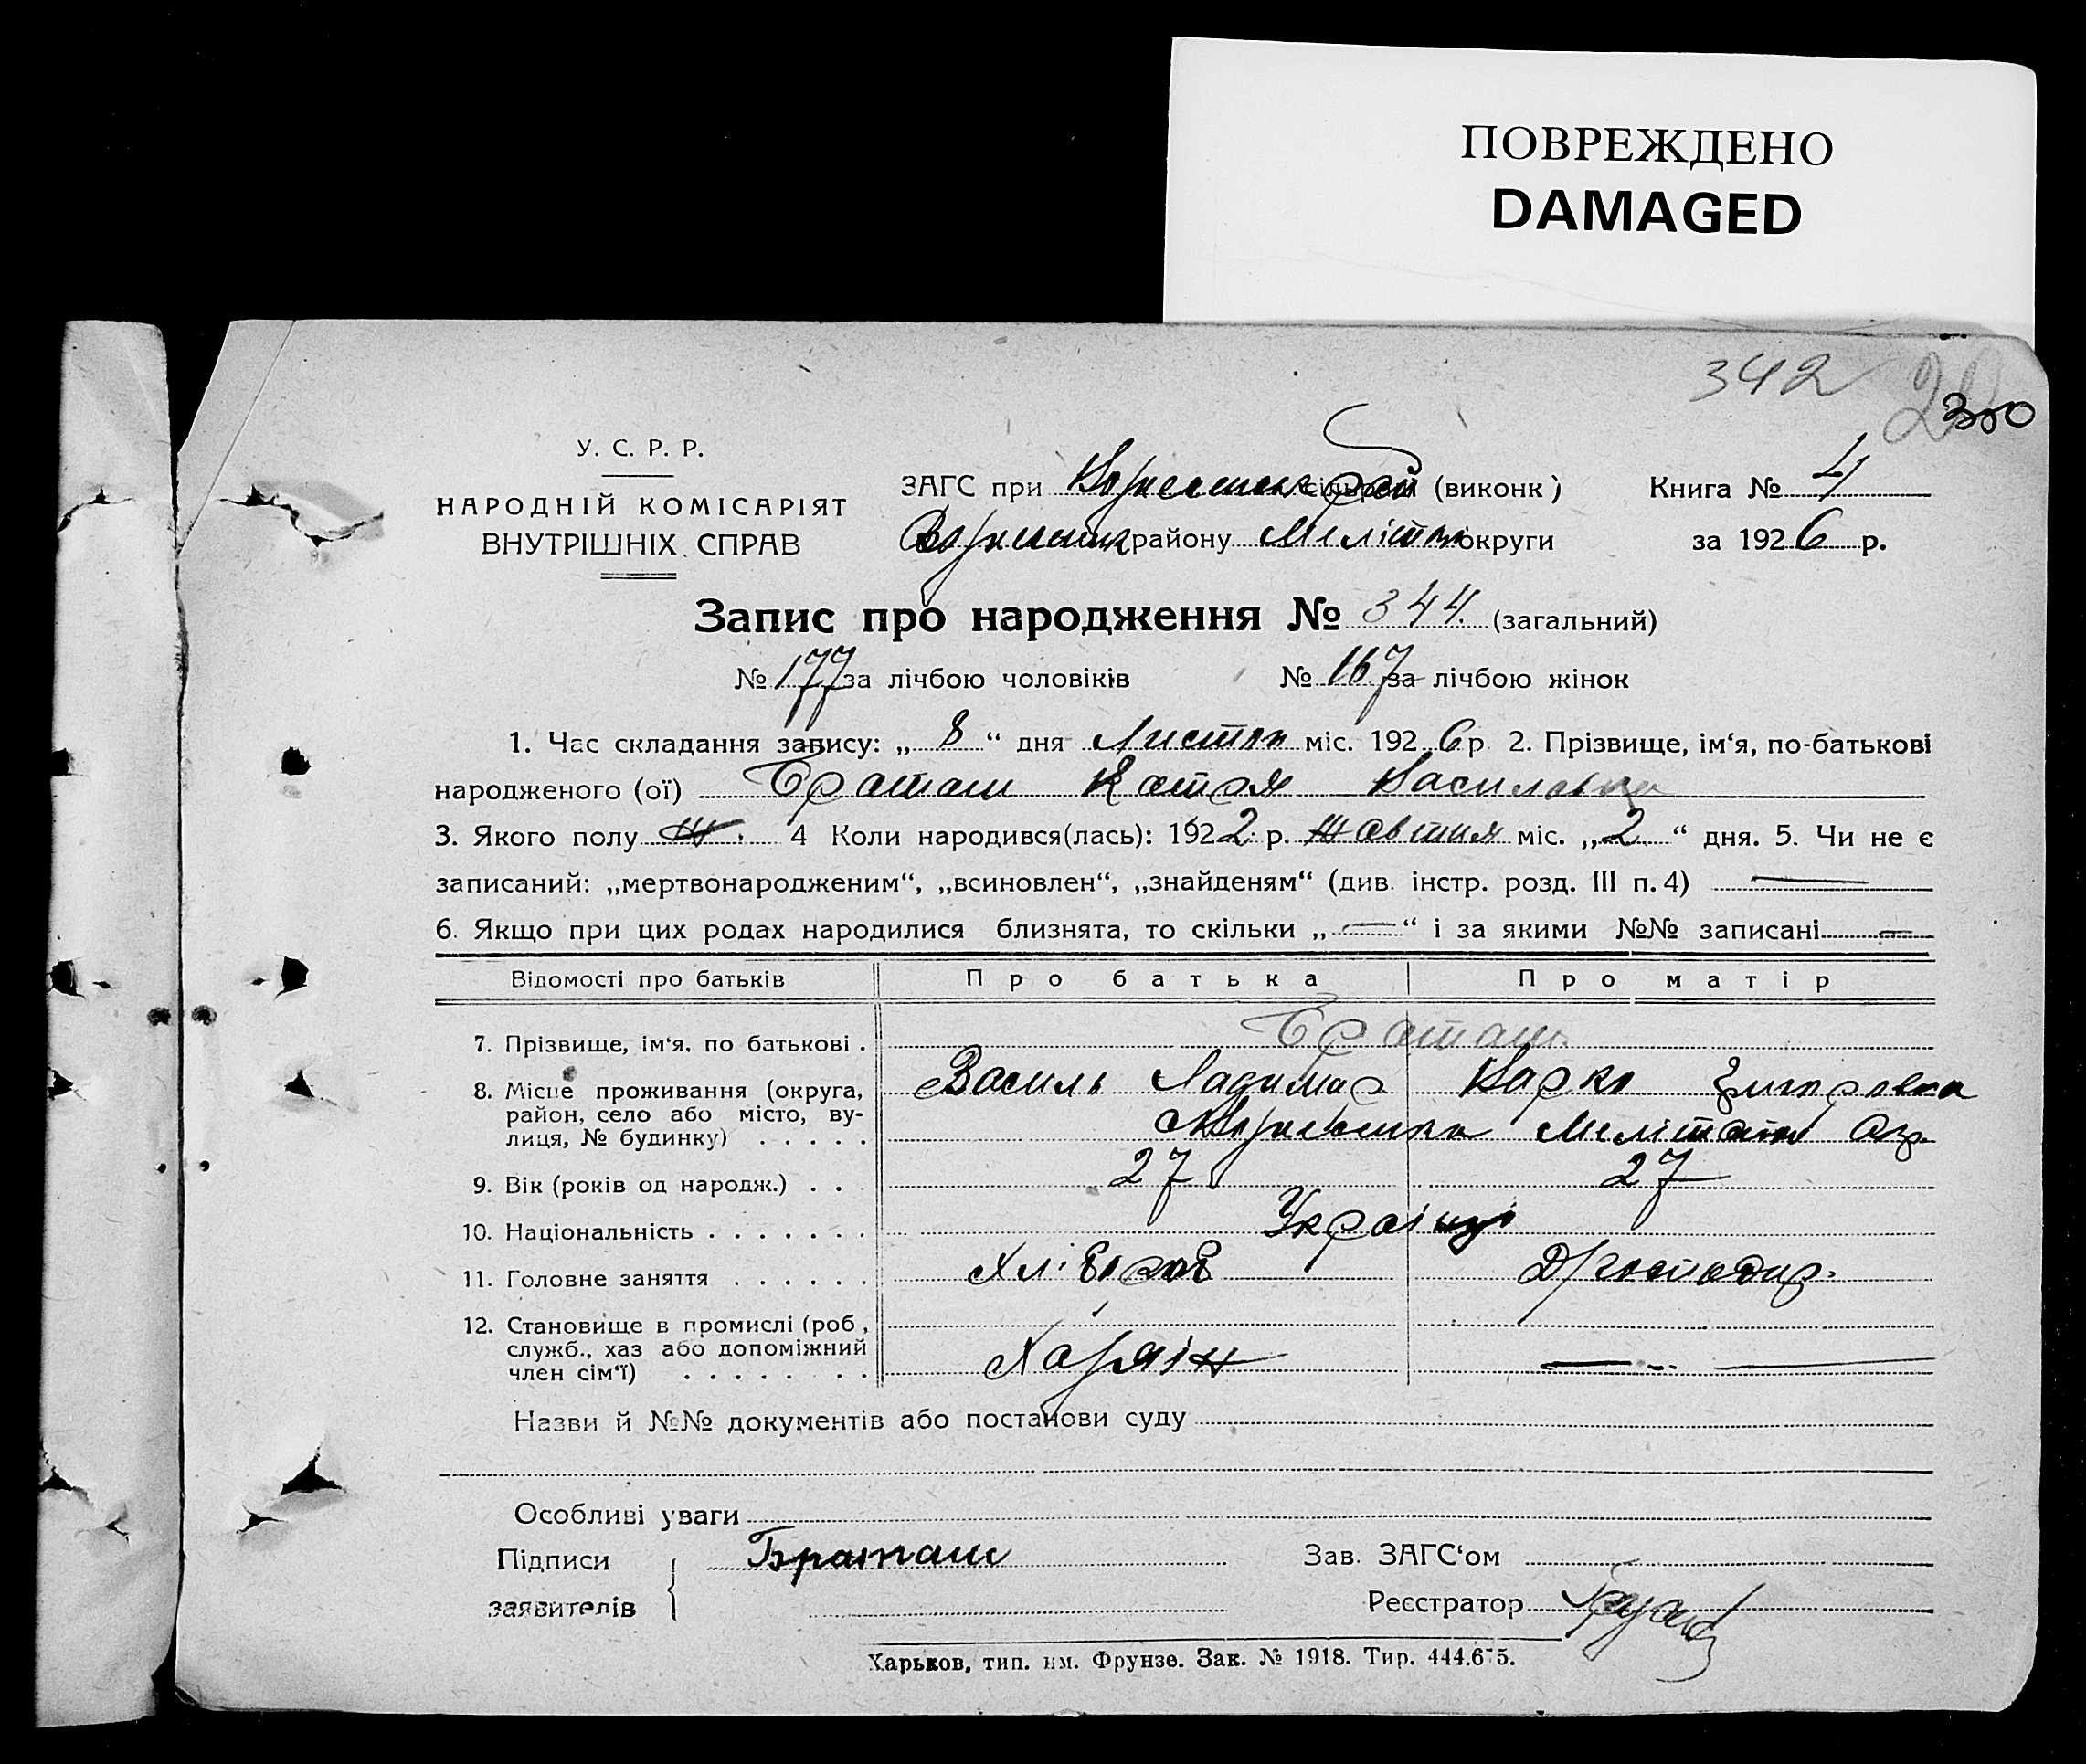 ПОВРЕЖДЕНО
DAMAGED
342
350
У. С. Р. Р.
НАРОДНІЙ КОМІСАРІЯТ
ВНУТРІШНІХ СПРАВ
ЗАГС при сільраді (виконк)
району Мелітоп округи
Книга № 4
за 1926 р.
Запис про народження № 344. (загальний)
№ 177 за лічбою чоловіків № 167 за лічбою жінок
1. Час складання запису: „ 8 “ дня Листоп міс. 1926 р 2. Прізвище, ім‘я, по-батькові
народженого (ої) Браташ Катря Василівна
3. Якого полу Ж. 4 Коли народився(лась): 1922 р. Жовтня міс. „ 2 “ дня. 5. Чи не є
записаний: „мертвонародженим“, „всиновлен“, „знайденям“ (див. інстр. розд. III п. 4) —
6. Якщо при цих родах народилися близнята, то скільки „ — “ і за якими №№ записані —
Відомості про батьків Про батька Про матір
7. Прізвище, ім‘я, по батькові . Браташ
8. Місце проживання (округа, Василь
район, село або місто, ву-
лиця, № будинку) . . . . . Мелітоп Окр.
9. Вік (років од народж.) . . 27 27
10. Національність . . . . . . . Українці
11. Головне заняття . . . . . . Хлібороб Д/господар.
12. Становище в промислі (роб,
служб., хаз або допоміжний
член сім‘ї) . . . . . . . Хазяїн —
Назви й №№ документів або постанови суду
Особливі уваги
Підписи Браташ Зав. ЗАГС‘ом
заявителів Реєстратор
Харьков, тип. им. Фрунзе. Зак. № 1918. Тир. 444.675.